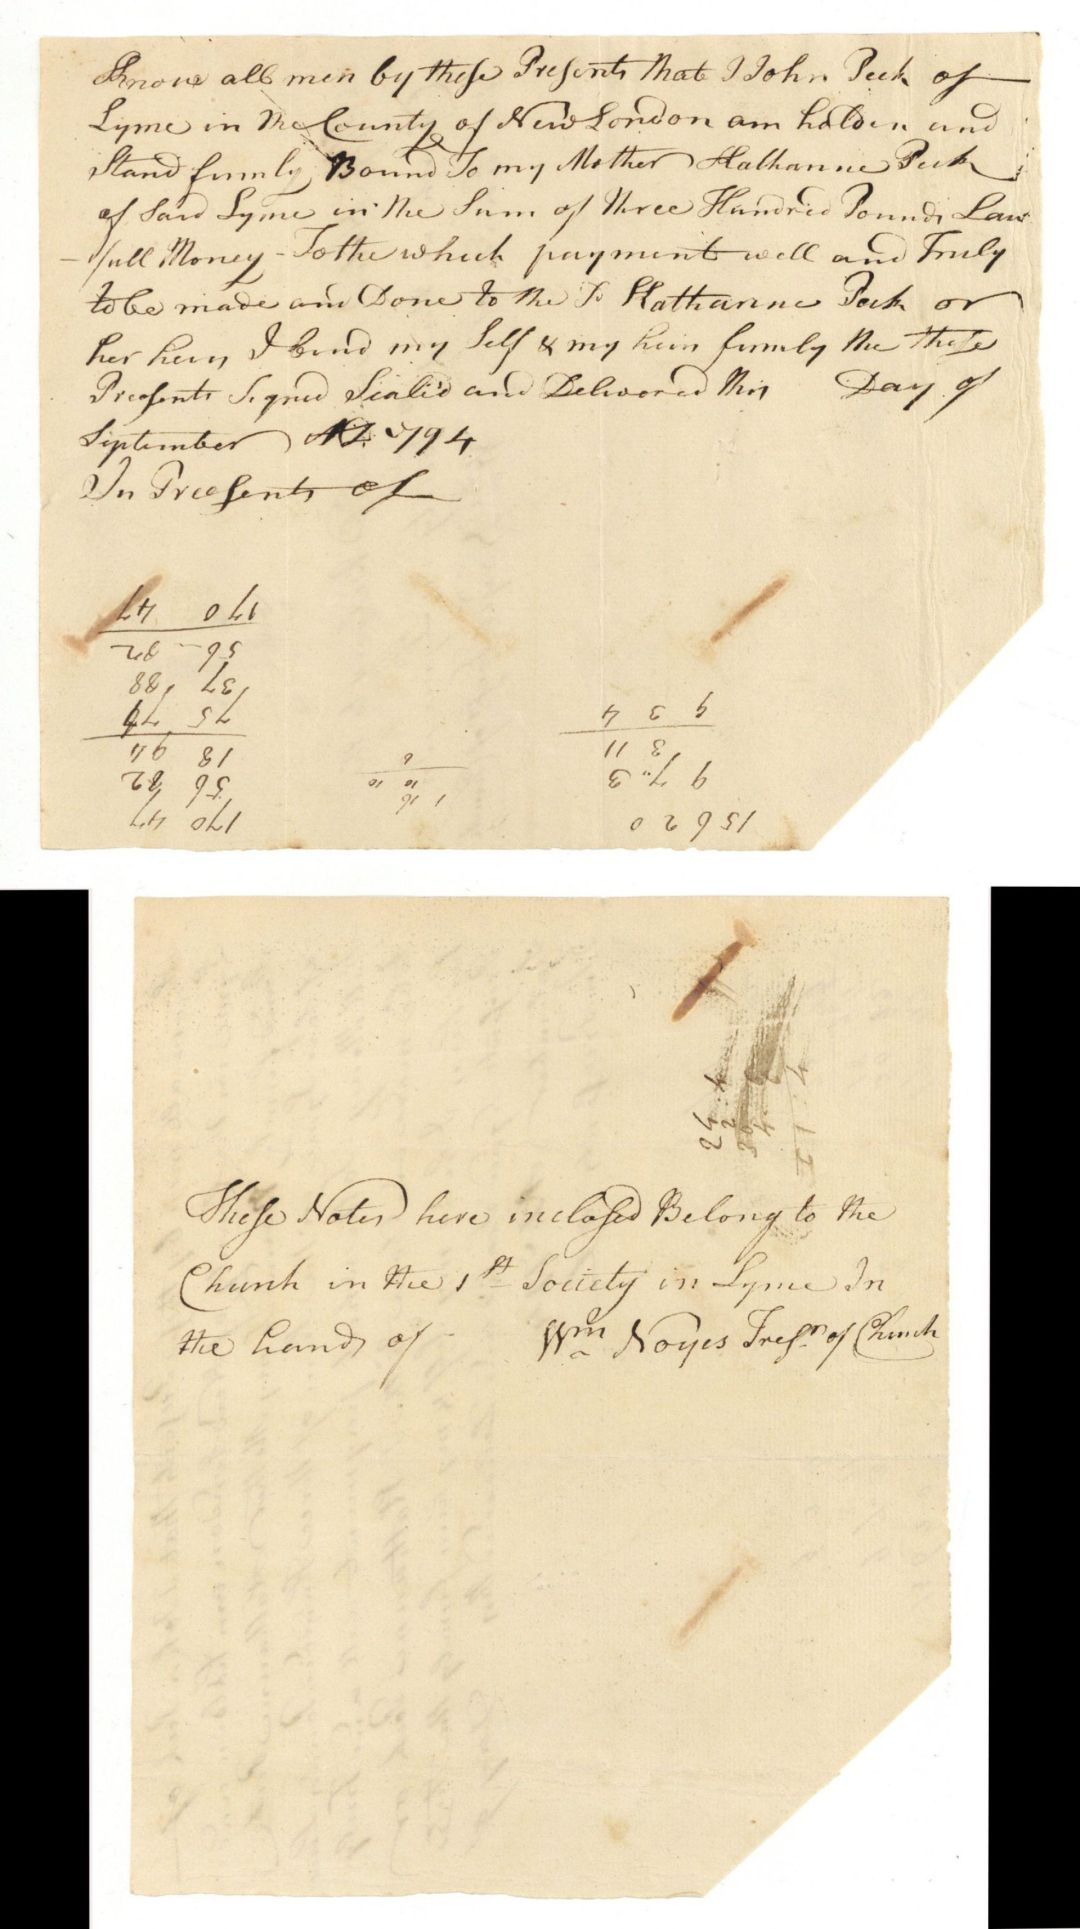 Know all men by these Presents that I John Peck of
Lyme in the County of New London am holden and
Stand firmly Bound To my Mother Kathanne Peck
of Said Lyme in the Sum of three Hundred Pounds Law
full Money - To the which payment well and Truly
to be made and Done to the Sd Katharine Peck or
her heirs I bind my Self & my heirs firmly the these
Preasents Signed Sealed and Delivored this Day of
September AD 1794
In Preasents of
170 47
56 82
18 94
75 74
37 88
56 82
170 47
1 16
10 10
6
15 6 2 0
9 7 3
3 11
9 3 4
24 . 4
2
4
These Notes here inclosed Belong to the
Church in the 1st Society in Lyme In
the hands of - Wm Noyes Tresr. of Church